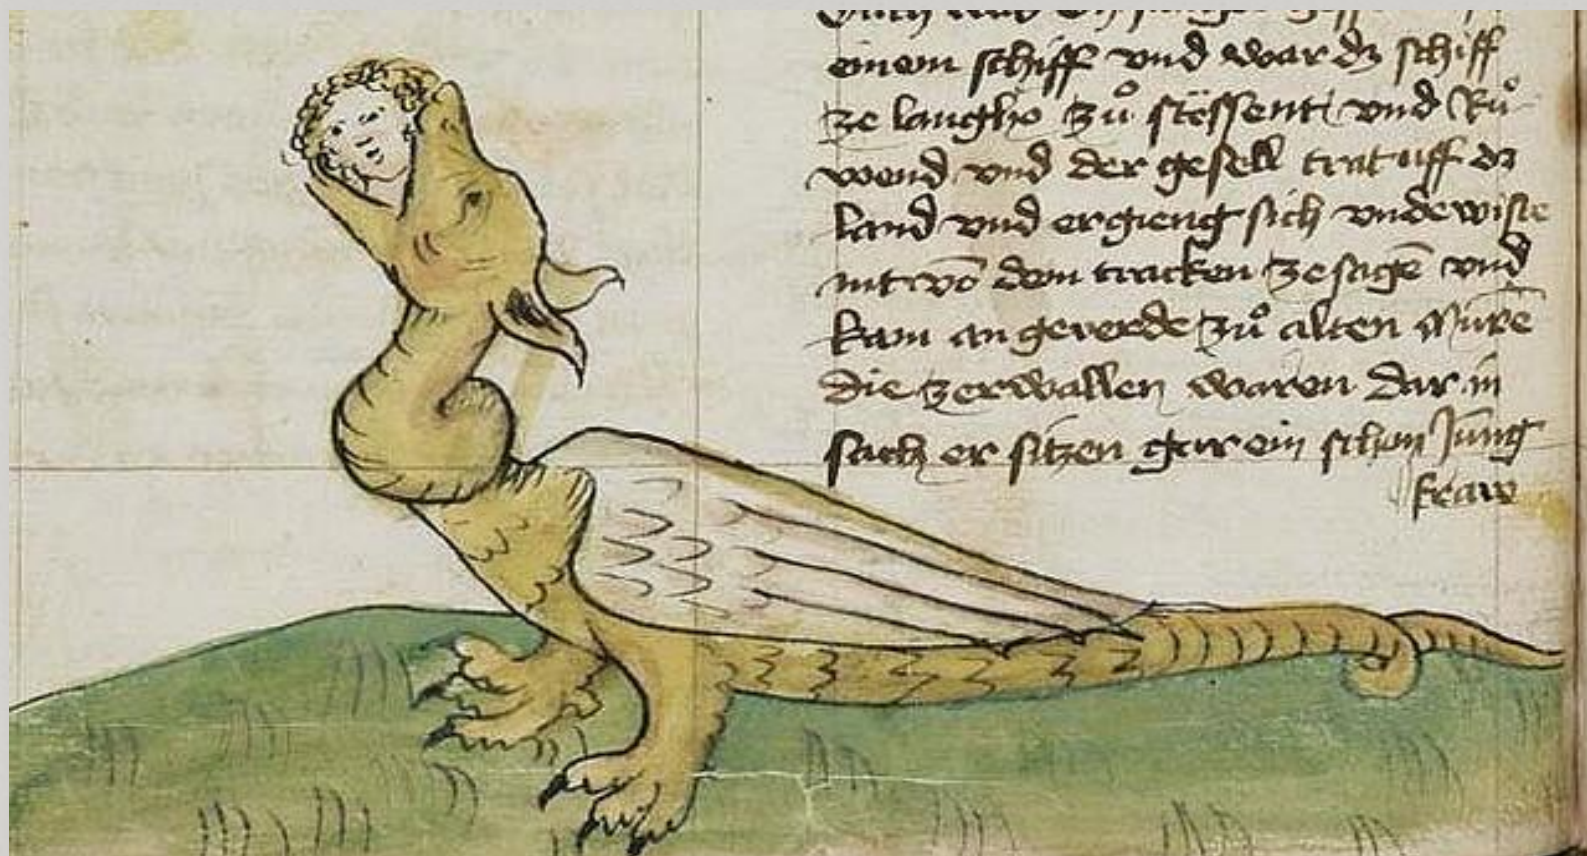 einem schiff vnd war dz schiff
ze langho zů stossent vnd Rů
wend vnd der gesell trat uff dz
land vnd ergieng sich vnd wiste
nit vō dem tracken ze sagē vnd
kam an geverde zů alten Murē
die zerwallen waren dar in
sach er sitzen gar ein schon Jung
fraw